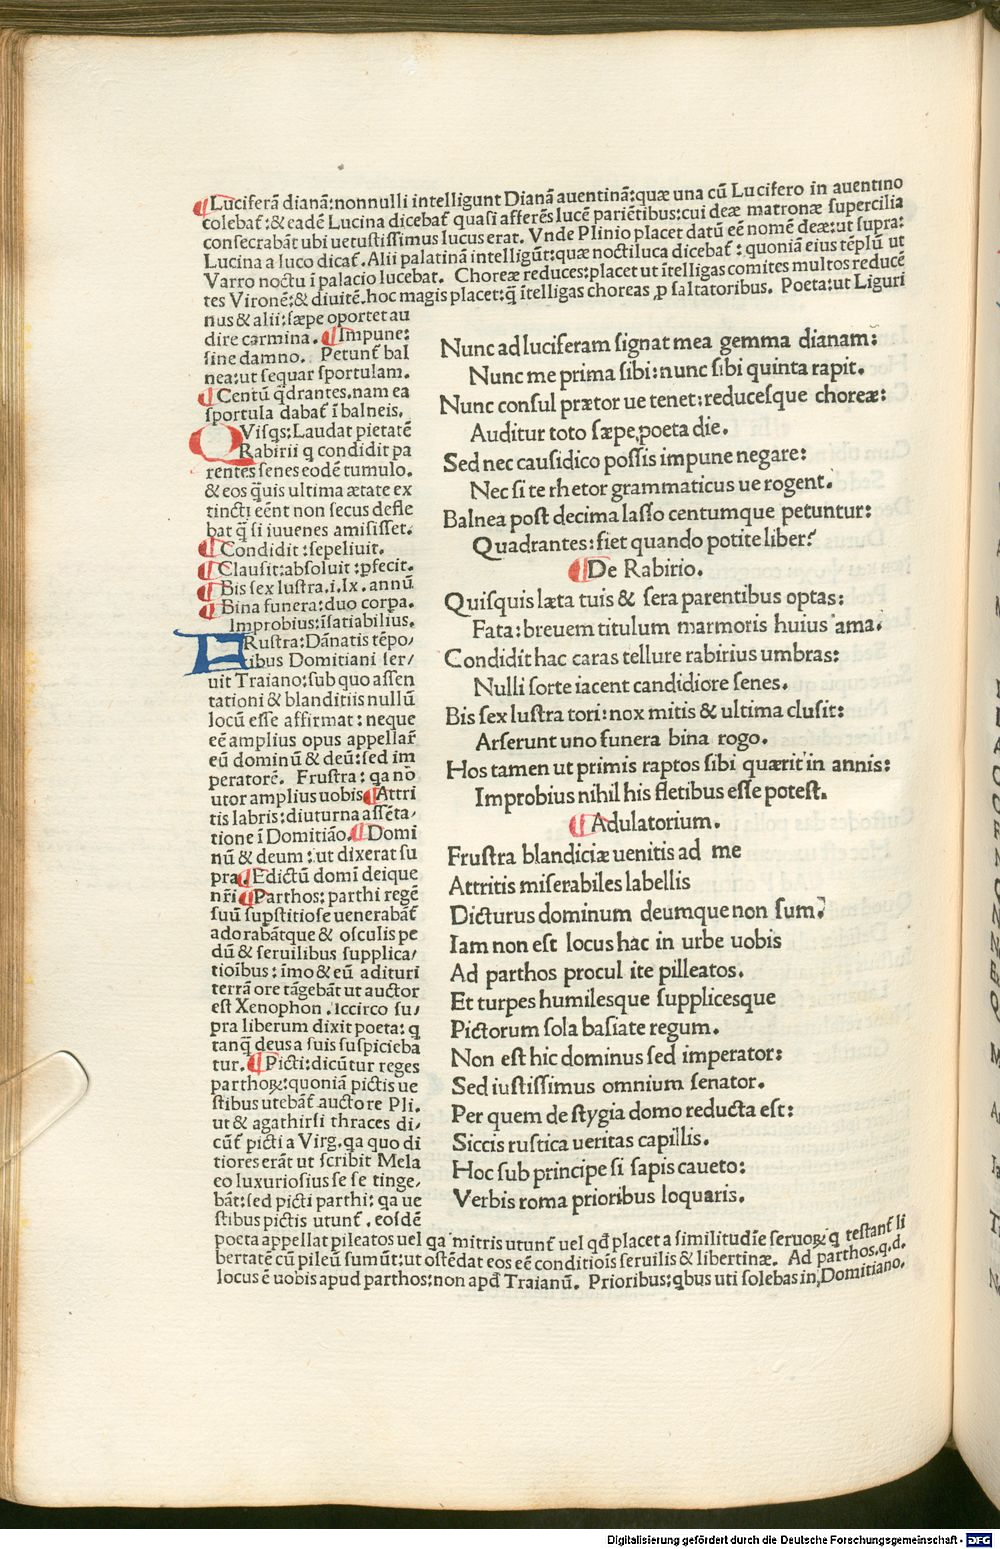 ¶Luciferā dianā:nonnulli intelligunt Dianā auentinā:quæ una cū Lucifero in auentino
colebat᷒:&eadē Lucina dicebat᷒ quasi afferēs lucē pariētibus:cui deæ matronæ supercilia
consecrabāt ubi uetustissimus lucus erat. Vnde Plinio placet datū eē nomē deæ:ut supra:
Lucina a luco dicat᷒. Alii palatinā intelligūt:quæ noctiluca dicebat᷒: quoniā eius tēplū ut
Varro noctu ī palacio lucebat. Choreæ reduces:placet ut ītelligas comites multos reducē
tes Vironē:& diuitē.hoc magis placet:q̄ ītelligas choreas ꝓ saltatoribus. Poeta:ut Liguri
nus & alii:sæpe oportet au
dire carmina. ¶Impune:
sine damno. Petunt᷒ bal
nea:ut sequar sportulam.
¶Centū q̇drantes.nam ea
sportula dabat᷒ ī balneis.
QVisq̇s:Laudat pietatē
Rabirii q̇ condidit pa
rentes senes eodē tumulo.
& eos q̇uis ultima ætate ex
tincti eēnt non secus defle
bat q̄ si iuuenes amisisset.
¶Condidit:sepeliuit.
¶Clausit:absoluit:ꝑfecit.
¶Bis sex lustra.i.lx.annū
¶Bina funera:duo corpa.
Improbius:īsatiabilius.
FRustra:Dānatis tēpo/
ribus Domitiani ser/
uit Traiano:sub quo assen
tationi & blanditiis nullū
locū esse affirmat: neque
eē amplius opus appellar̄
eū dominū & deū:sed im
peratorē. Frustra: qa nō
utor amplius uobis ¶Attri
tis labris:diuturna assēta/
tione ī Domitiāo. ¶Domi
nū & deum:ut dixerat su
pra ¶Edictū domī deique
nr̄i ¶Parthos: parthi regē
suū supstitiose uenerabāt᷒
adorabātque & osculis pe
dū & seruilibus supplica/
tioībus:īmo & eū adituri
terrā ore tāgebāt ut auctor
est Xenophon.Iccirco su/
pra liberum dixit poeta: q
tanq̄ deus a suis suspicieba
tur. ¶Picti:dicūtur reges
parthoꝝ:quoniā pictis ue
stibus utebāt᷒ auctore Pli.
ut & agathirsi thraces di/
cūt᷒ picti a Virg.qa quo di
tiores erāt ut scribit Mela
eo luxuriosius se se tinge/
bāt:sed picti parthi: qa ue
stibus pictis utunt᷒. eosdē
Nunc ad luciferam signat mea gemma dianam:
Nunc me prima sibi:nunc sibi quinta rapit.
Nunc consul prætor ue tenet:reducesque choreæ:
Auditur toto sæpe poeta die.
Sed nec causidico possis impune negare:
Nec si te rhetor grammaticus ue rogent.
Balnea post decima lasso centumque petuntur:
Quadrantes:fiet quando potite liber?
¶De Rabirio.
Quisquis læta tuis & sera parentibus optas:
Fata:breuem titulum marmoris huius ama.
Condidit hac caras tellure rabirius umbras:
Nulli sorte iacent candidiore senes.
Bis sex lustra tori:nox mitis & ultima clusit:
Arserunt uno funera bina rogo.
Hos tamen ut primis raptos sibi quærit in annis:
Improbius nihil his fletibus esse potest.
¶Adulatorium.
Frustra blandiciæ uenitis ad me
Attritis miserabiles labellis
Dicturus dominum deumque non sum?
Iam non est locus hac in urbe uobis
Ad parthos procul ite pilleatos.
Et turpes humilesque supplicesque
Pictorum sola basiate regum.
Non est hic dominus sed imperator:
Sed iustissimus omnium senator.
Per quem de stygia domo reducta est:
Siccis rustica ueritas capillis.
Hoc sub principe si sapis caueto:
Verbis roma prioribus loquaris.
poeta appellat pileatos uel qa mitris utunt᷒ uel qd̄ placet a similitudīe seruoꝝ q testant᷒ li
bertatē cū pileū sumūt:ut ostēdat eos eē conditiois seruilis & libertinæ. Ad parthos.q.d.
locus ē uobis apud parthos:non apd̄ Traianū. Prioribus:qbus uti solebas in Domitiano.
Digitalisierung gefördert durch die Deutsche Forschungsgemeinschaft - DFG